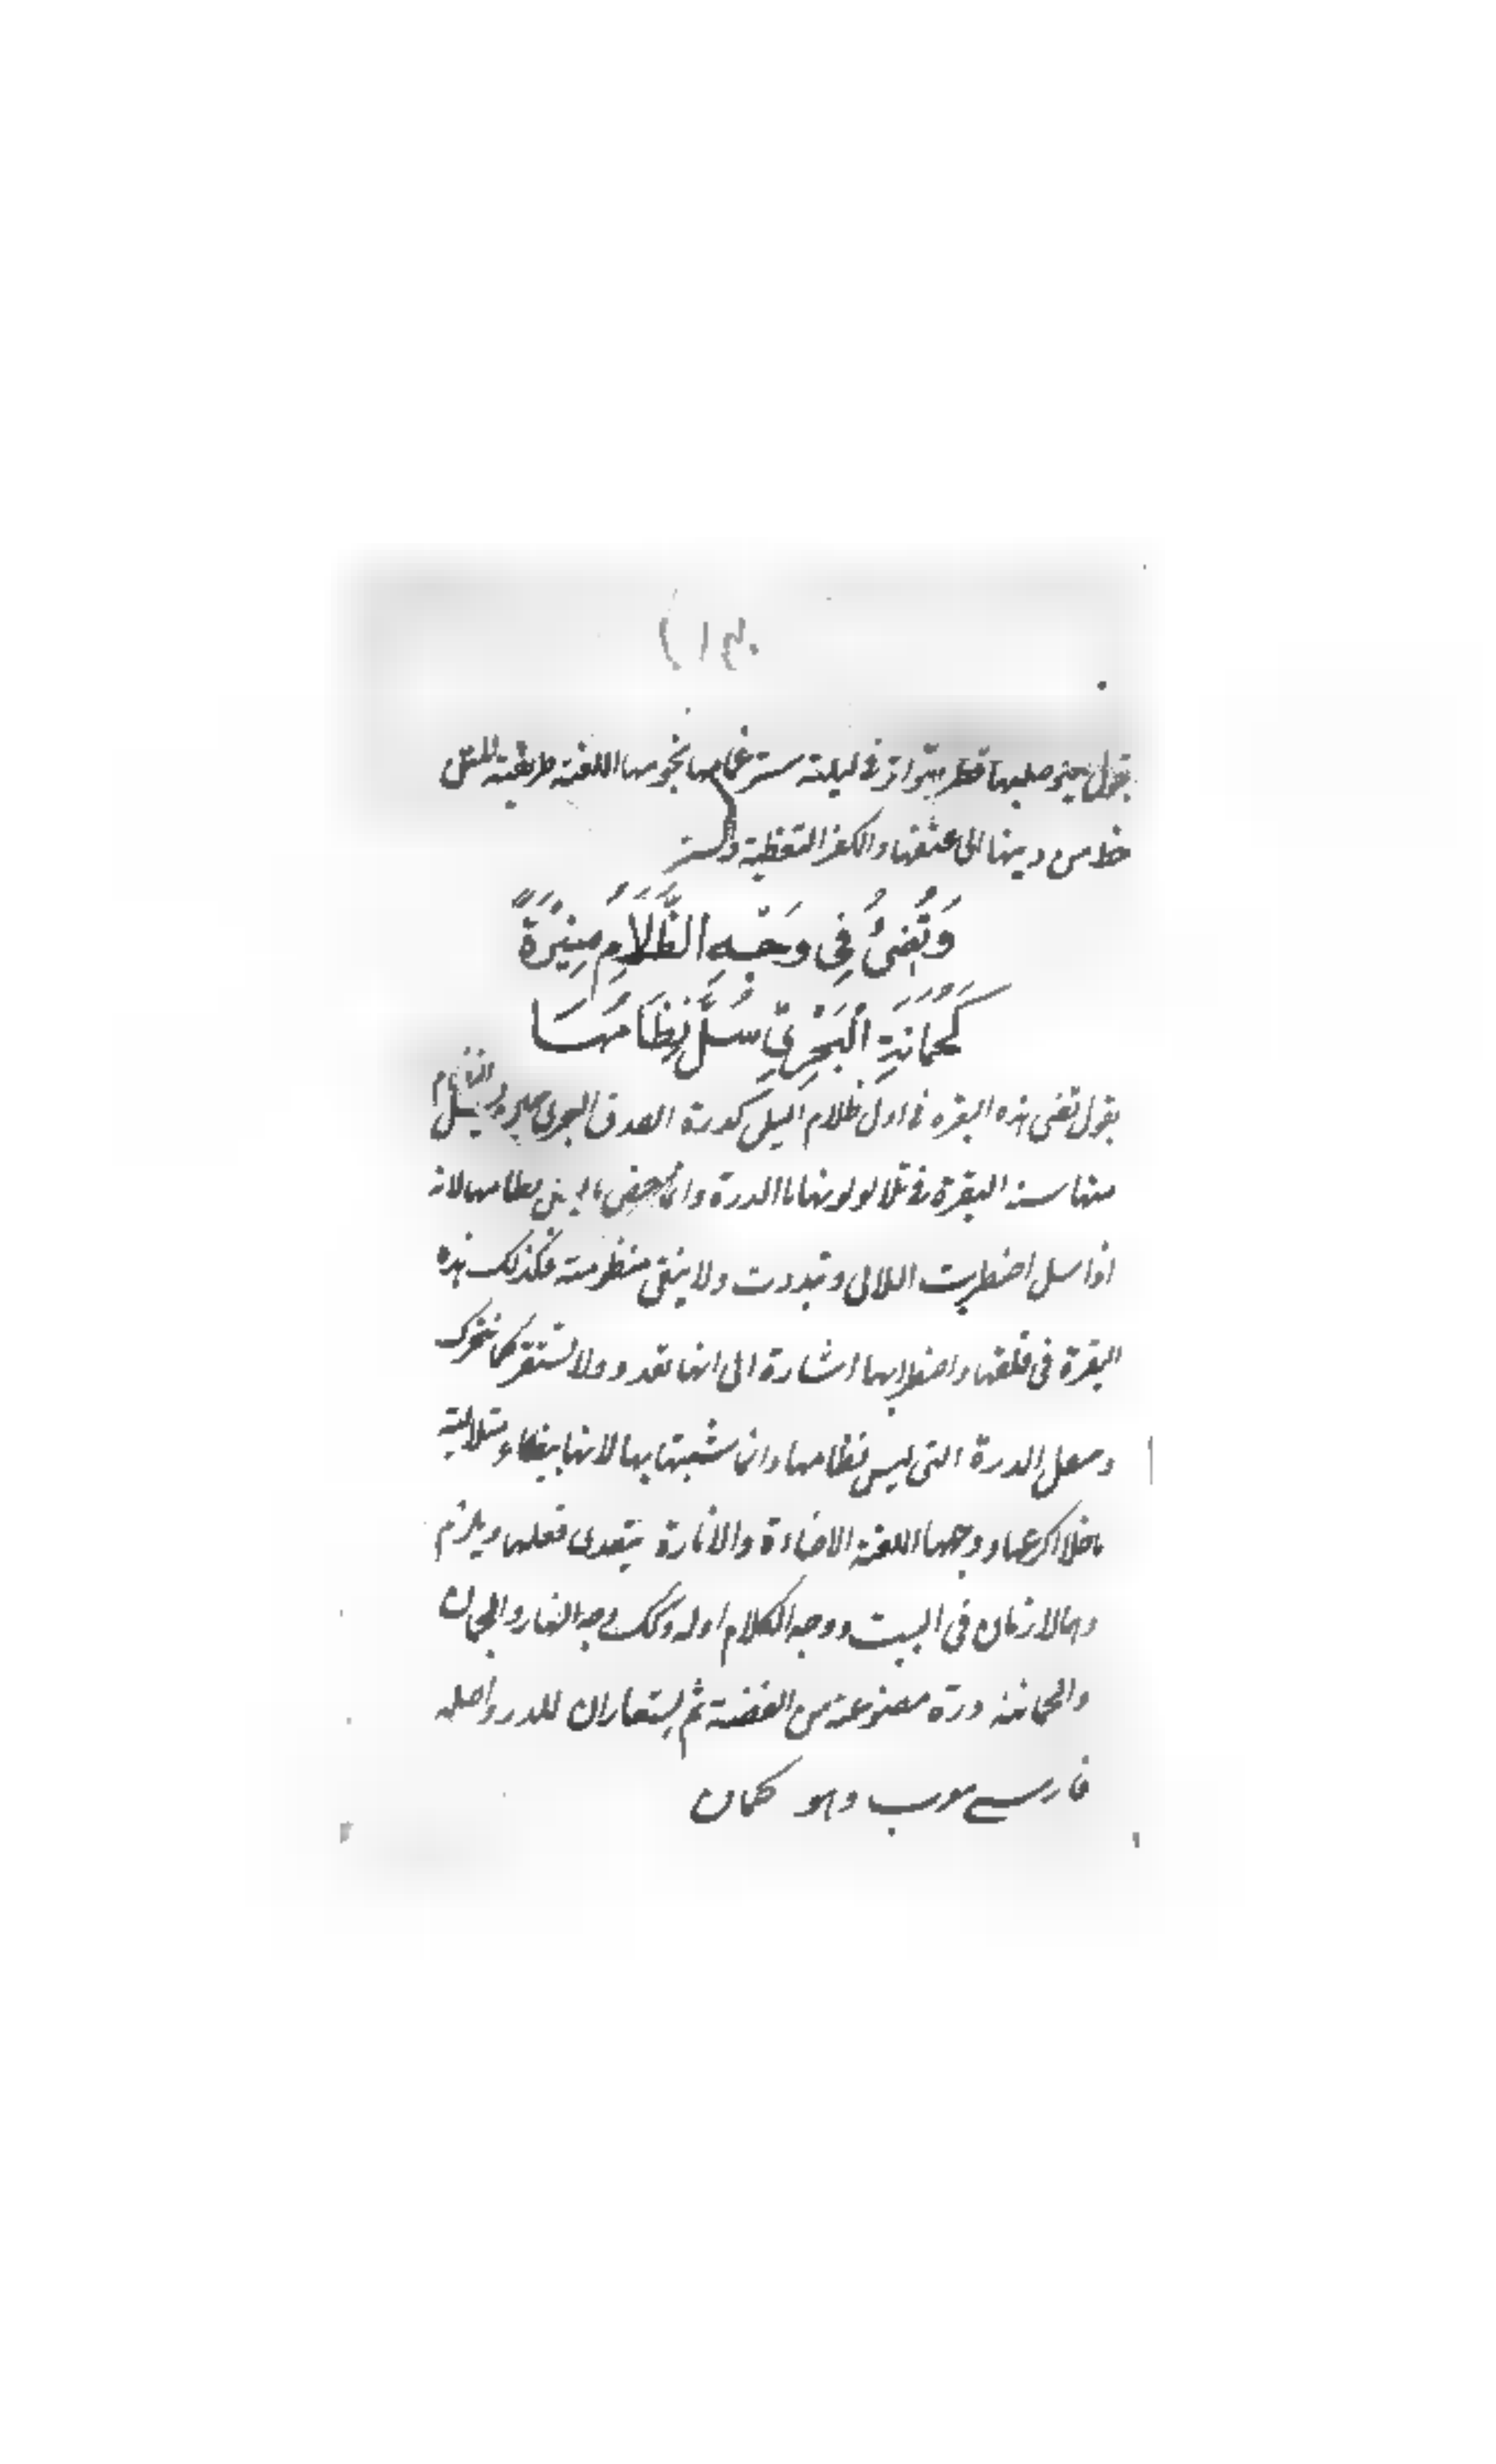 يقول يعلو صلبها قطر متواتر فى ليلة ستر غمامها نجومها اللغة طريقة المتن
خط من دينها الى عنقها والكفر التغطية والستر
وَتُضِئُ فِي وَجْهِ الظَّلَامِ مُنِيْرَةً
كَجُمَانَةِ الْبَحْرِيِّ سُلَّ نِظَامُهَا
يقول تضئ هذه البقرة فى اول ظلام الليل كدرة الصدف البحرى
البقرة فى تلالو لونها بالدرة وانما نظامها لانه
اذا سل اضطربت اللالى وتبددت ولا يبقى منظومته فكذلك هذه
البقرة فى قلقها واضطرابها اشارة الى انها تعدو ولا تستقر كما تتحرك
الدرة التى ليس نظامها وانما شبهتها بها لانها بيضاء متلالية
ما خلا اكارعها ووجهها اللغة الاضاءة والانارة يتعدى فعلها ويلزم
وهما لازمان فى البيت ووجه الكلام اوله وكذلك وجه النهار والجمان
والجمانة درة مصنوعة من الفضة ثم يستعاران للدر واصله
فارسى معرب وهو كمان